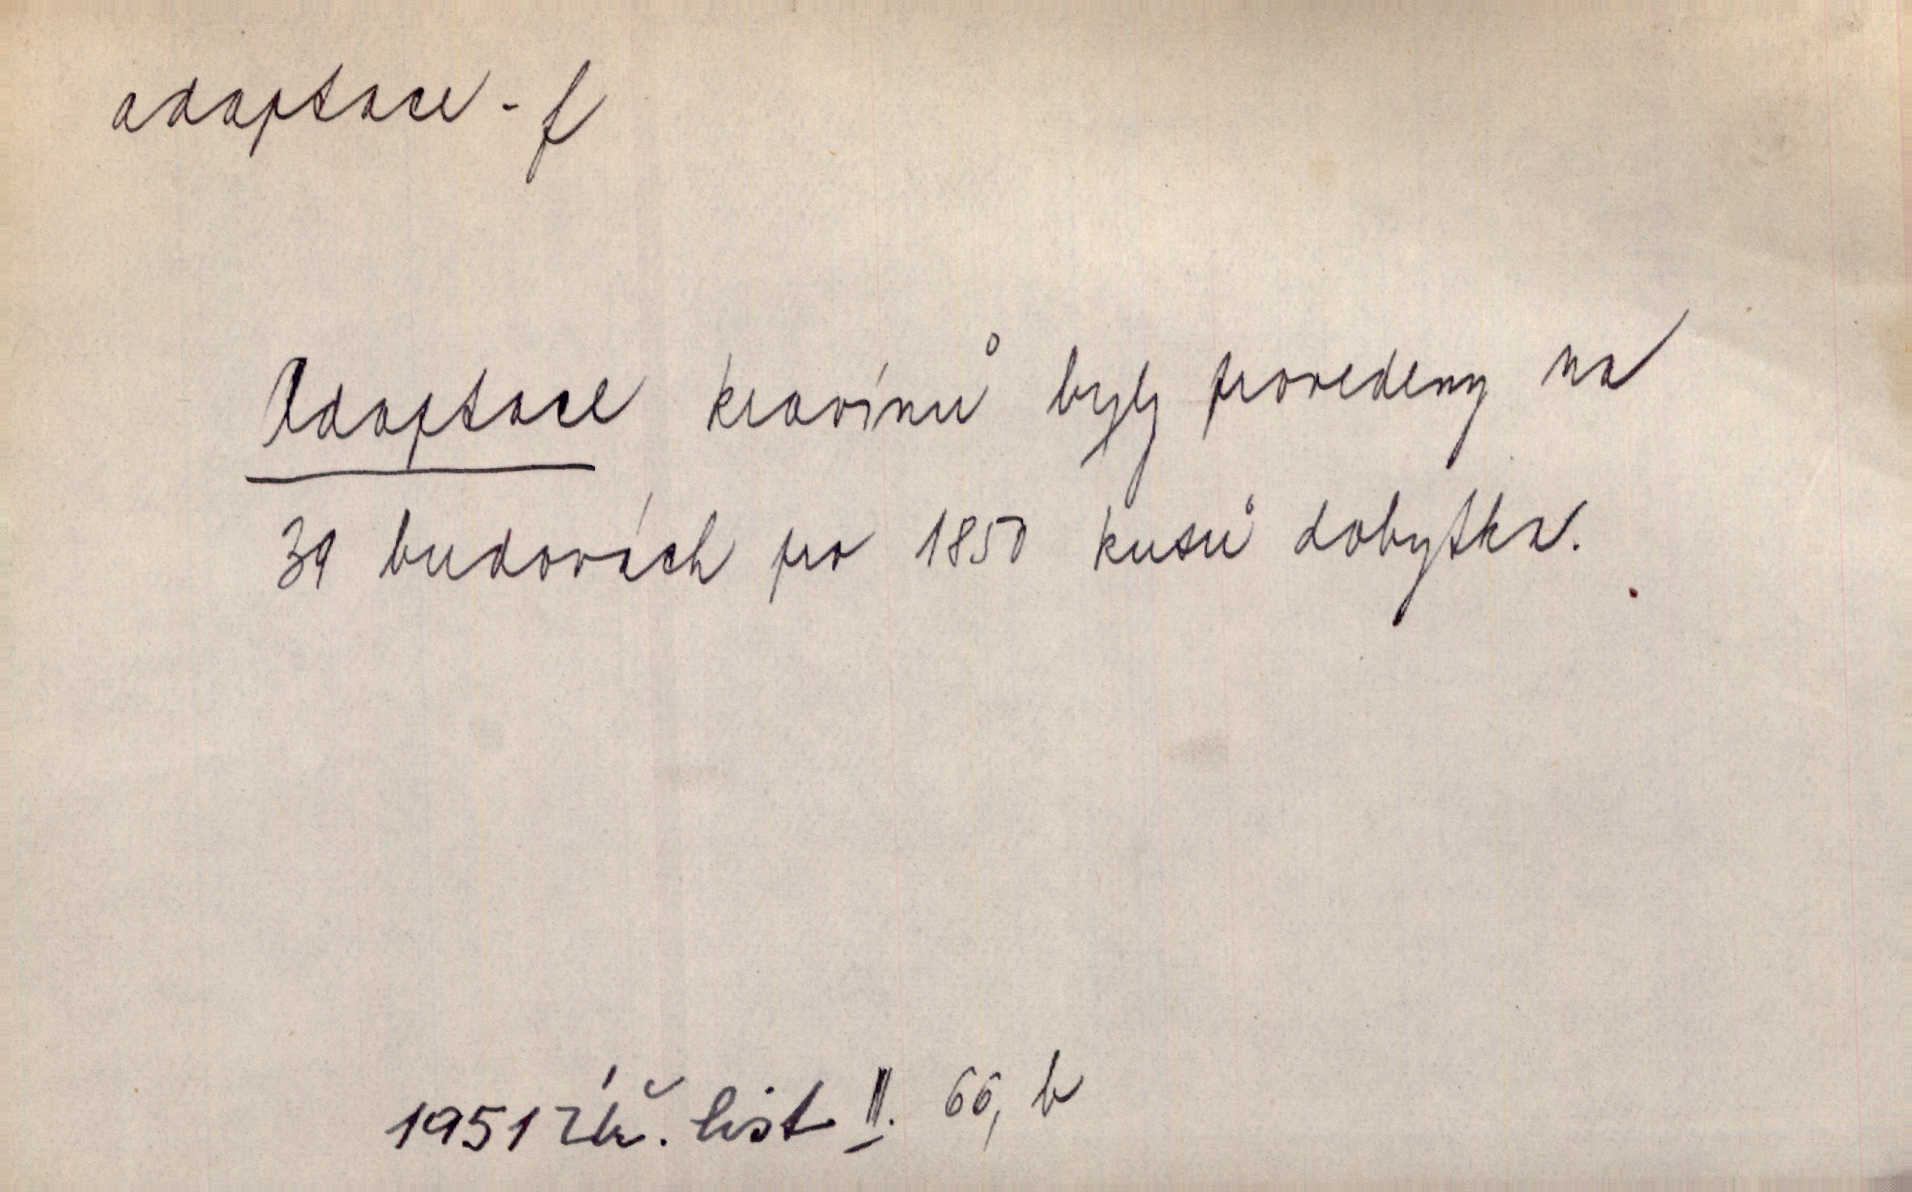 adaptace - f
Adaptace kravínů byly provedeny na
39 budovách pro 1850 kusů dobytka.
1951 list II. 66, b